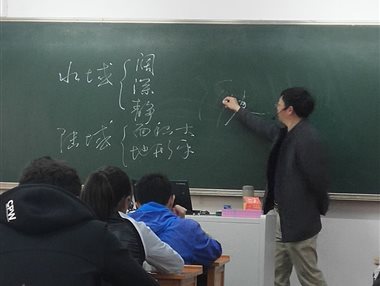 水域
阔
深
静
陆域
面积大
地形平
CPN